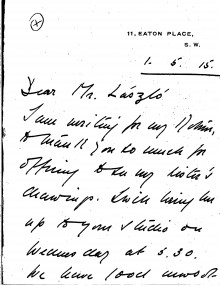 11, EATON PLACE,
S. W.
1. 5. 15.
Dear Mr. László
I am writing for my
to thank you so much for
offering to see my sister's
drawings. I will bring
up to your Studio on
Wednesday at 5.30.
We have